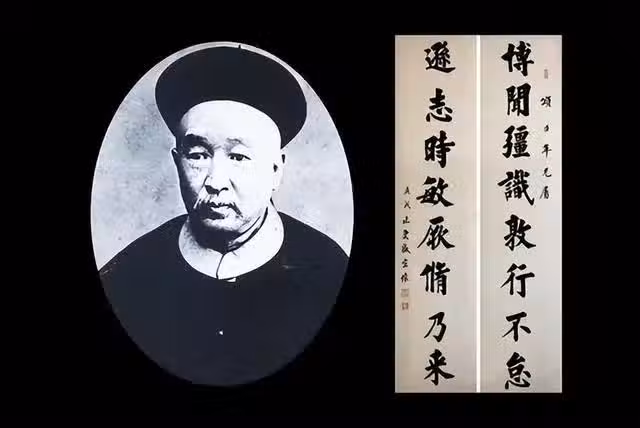 博聞彊識敦行不怠
頌年兄屬
遜志時敏厥脩乃来